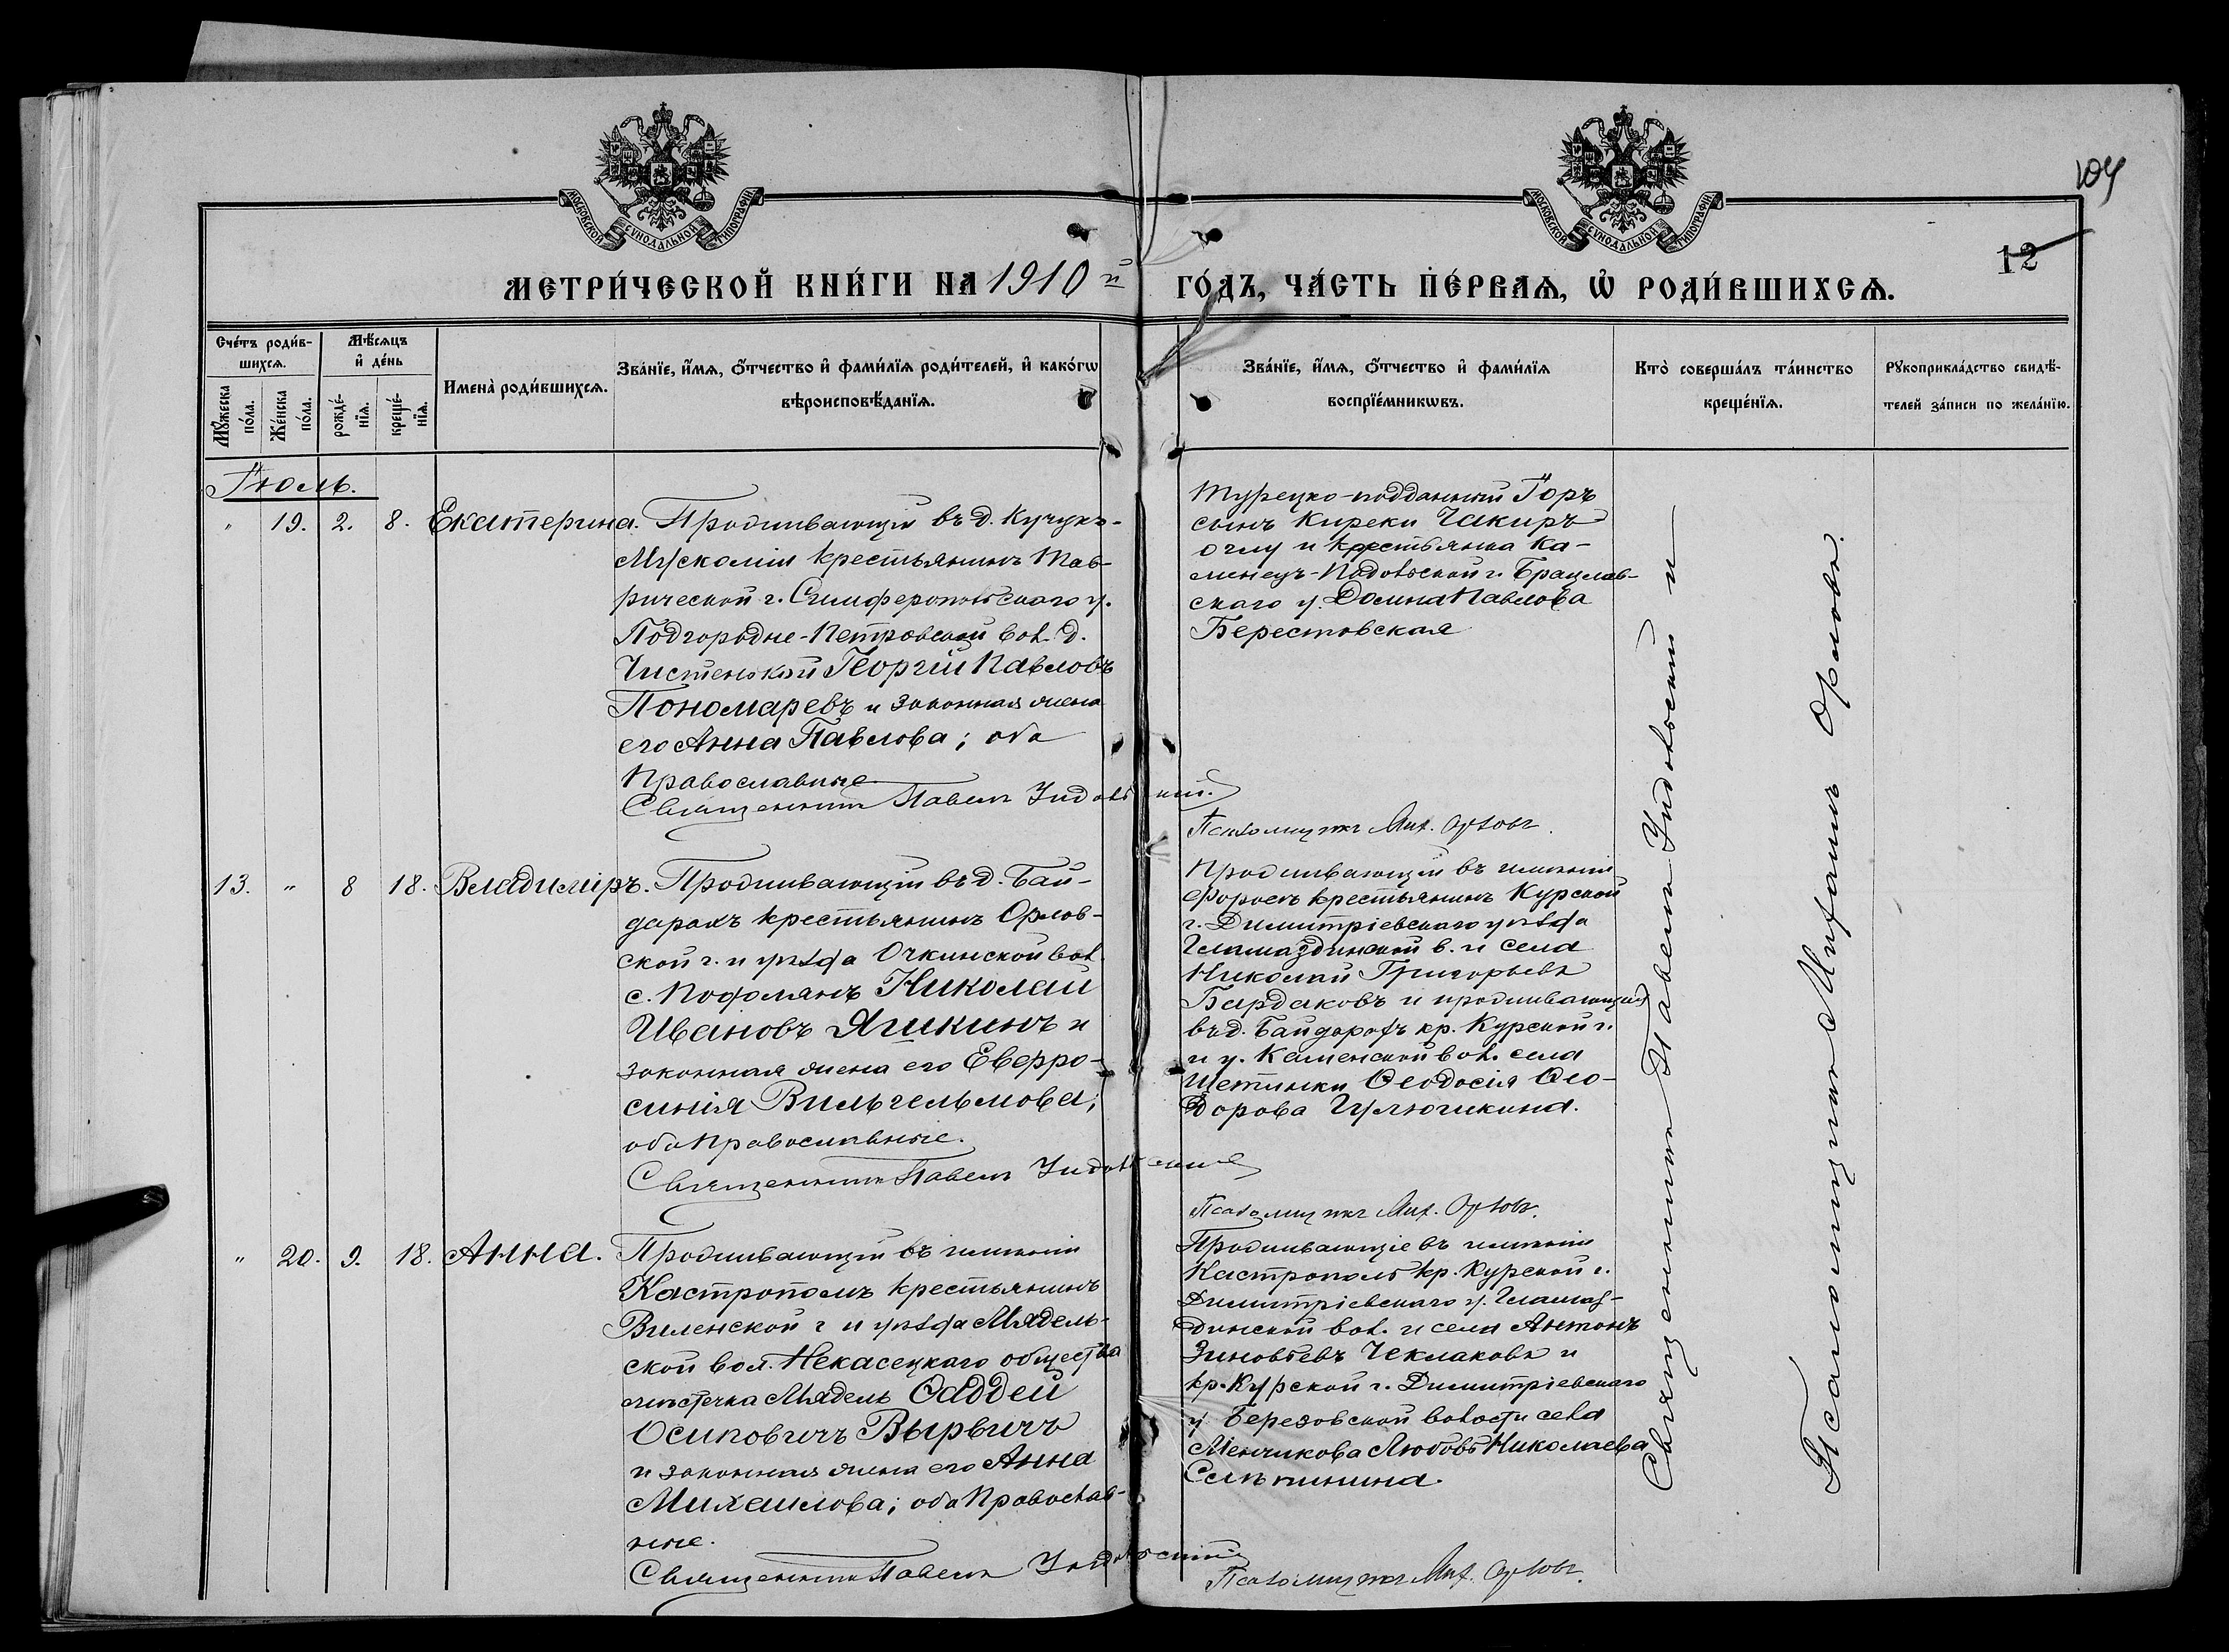 МОСКОВСКОЙ СѴНОДАЛЬНОЙ ТИПОГРАФІИ.
МОСКОВСКОЙ СѴНОДАЛЬНОЙ ТИПОГРАФІИ.
104
12
МЕТРИ́ЧЕСКОЙ КНИ́ГИ НА 1910й ГО́ДЪ, ЧА́СТЬ ПЕ́РВАѦ, Ѡ҆ РОДИ́ВШИХСѦ.
Сче́тъ роди́в-
шихсѧ.
Мꙋ́жеска по́ла.
Же́нска по́ла.
Мѣ́сѧцъ
и҆ де́нь
рожде́-
нїѧ.
креще́-
нїѧ.
Имена̀ роди́вшихсѧ.
Зва́нїе, и҆́мѧ, ѻ҆́тчество и҆ фами́лїѧ роди́телей, и҆ како́гѡ
вѣроисповѣ́данїѧ.
Зва́нїе, и҆́мѧ, ѻ҆́тчество и҆ фами́лїѧ
воспрїе́мникѡвъ.
Кто̀ соверша́лъ та́инство
креще́нїѧ.
Рꙋкоприкла́дство свидѣ́-
телей за́писи по жела́нїю.
Іюль.
" 19. 2. 8. Екатерина.
Проживающій въ д. Кучукъ-
Мускоміи крестьянинъ Тав-
рической г. Симферопольскаго у.
Подгородне-Петровской вол. д.
Чистенькой Георгій Павловъ
Пономаревъ и законная жена
его Анна Павлова; оба
Православные
Священникъ Павелъ Индольскій.
Турецко-подданный Іор
сынъ Киреки Чакиръ
оглу и крестьянка Ка-
менецъ-Подольской г. Брацлав-
скаго у. Домна Павлова
Берестовская
Псаломщикъ Мих. Орловъ.
13. " 8 18. Владиміръ.
Проживающій въ д. Бай-
дарахъ крестьянинъ Орлов-
ской г. и уѣзда Очкинской вол.
с. Николай
Ивановъ Ягикинъ и
законная жена его Евфро-
синія Вильгельмова;
оба Православные.
Священникъ Павелъ Индольскій
Проживающій въ имѣніи
Форосъ крестьянинъ Курской
г. Димитріевскаго уѣзда
Гламаздинской в. и села
Николай Григорьевъ
Бардаковъ и проживающая
въ д. Байдарахъ кр. Курской г.
и у. Каменской вол. села
Щетинки Ѳеодосія Ѳео-
дорова
Псаломщикъ Мих. Орловъ.
" 20. 9. 18. Анна.
Проживающій въ имѣніи
Кастрополь крестьянинъ
Виленской г. и уѣзда Мядель-
ской вол. Некасецкаго общества
мѣстечка Мядель Ѳаддей
Осиповичъ Вырвичъ
и законная жена его Анна
Михаилова; оба Православ-
ные.
Священникъ Павелъ Индольскій
Проживающіе въ имѣніи
Кастрополь кр. Курской г.
Димитріевскаго у. Гламаз-
динской вол. и села Антонъ
Зиновьевъ Чеклаковъ и
кр. Курской г. Димитріевскаго
у. Березовской волости села
Меньчикова Любовь Николаева
Псаломщикъ Мих. Орловъ.
Священникъ Павелъ Индольскій и
Псаломщикъ Михаилъ Орловъ.